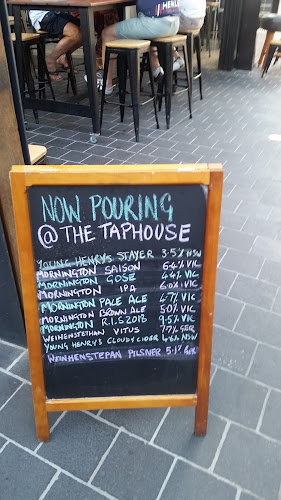 NOW POURING
@ THE TAPHOUSE
YOUNG HENRYS STAYER 3.5% NSW
MORNINGTON SAISON 6.4% VIC
MORNINGTON GOSE 4.4% VIC
MORNINGTON IPA 6.0% VIC
MORNINGTON PALE ALE 4.7% VIC
MORNINGTON BROWN ALE 5.0% VIC
MORNINGTON R.I.S 2018 9.5% VIC
WEIHENSTEPHAN VITUS 7.7% GER
YOUNG HENRYS CLOUDY CIDER 4.6% NSW
WEINHENSTEPAN PILSNER 5.1%